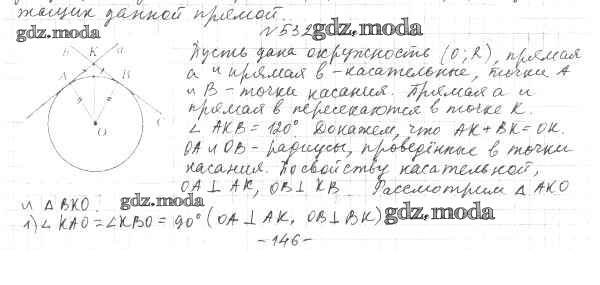 жащих данной прямой.
№532
gdz.moda
gdz.moda
в K a
Пусть дана окружность (O; R), прямая
а и прямая в - касательные, точки A
A B
и B - точки касания. Прямая а и
прямая в пересекаются в точке K.
∠ AKB = 120°. Докажем, что AK + BK = OK.
C
O
OA и OB - радиусы, проведённые в точки
касания. По свойству касательной,
OA ⊥ AK, OB ⊥ KB. Рассмотрим △ AKO
и △ BKO:
gdz.moda
1) ∠ KAO = ∠ KBO = 90° (OA ⊥ AK, OB ⊥ BK)
gdz.moda
- 146 -